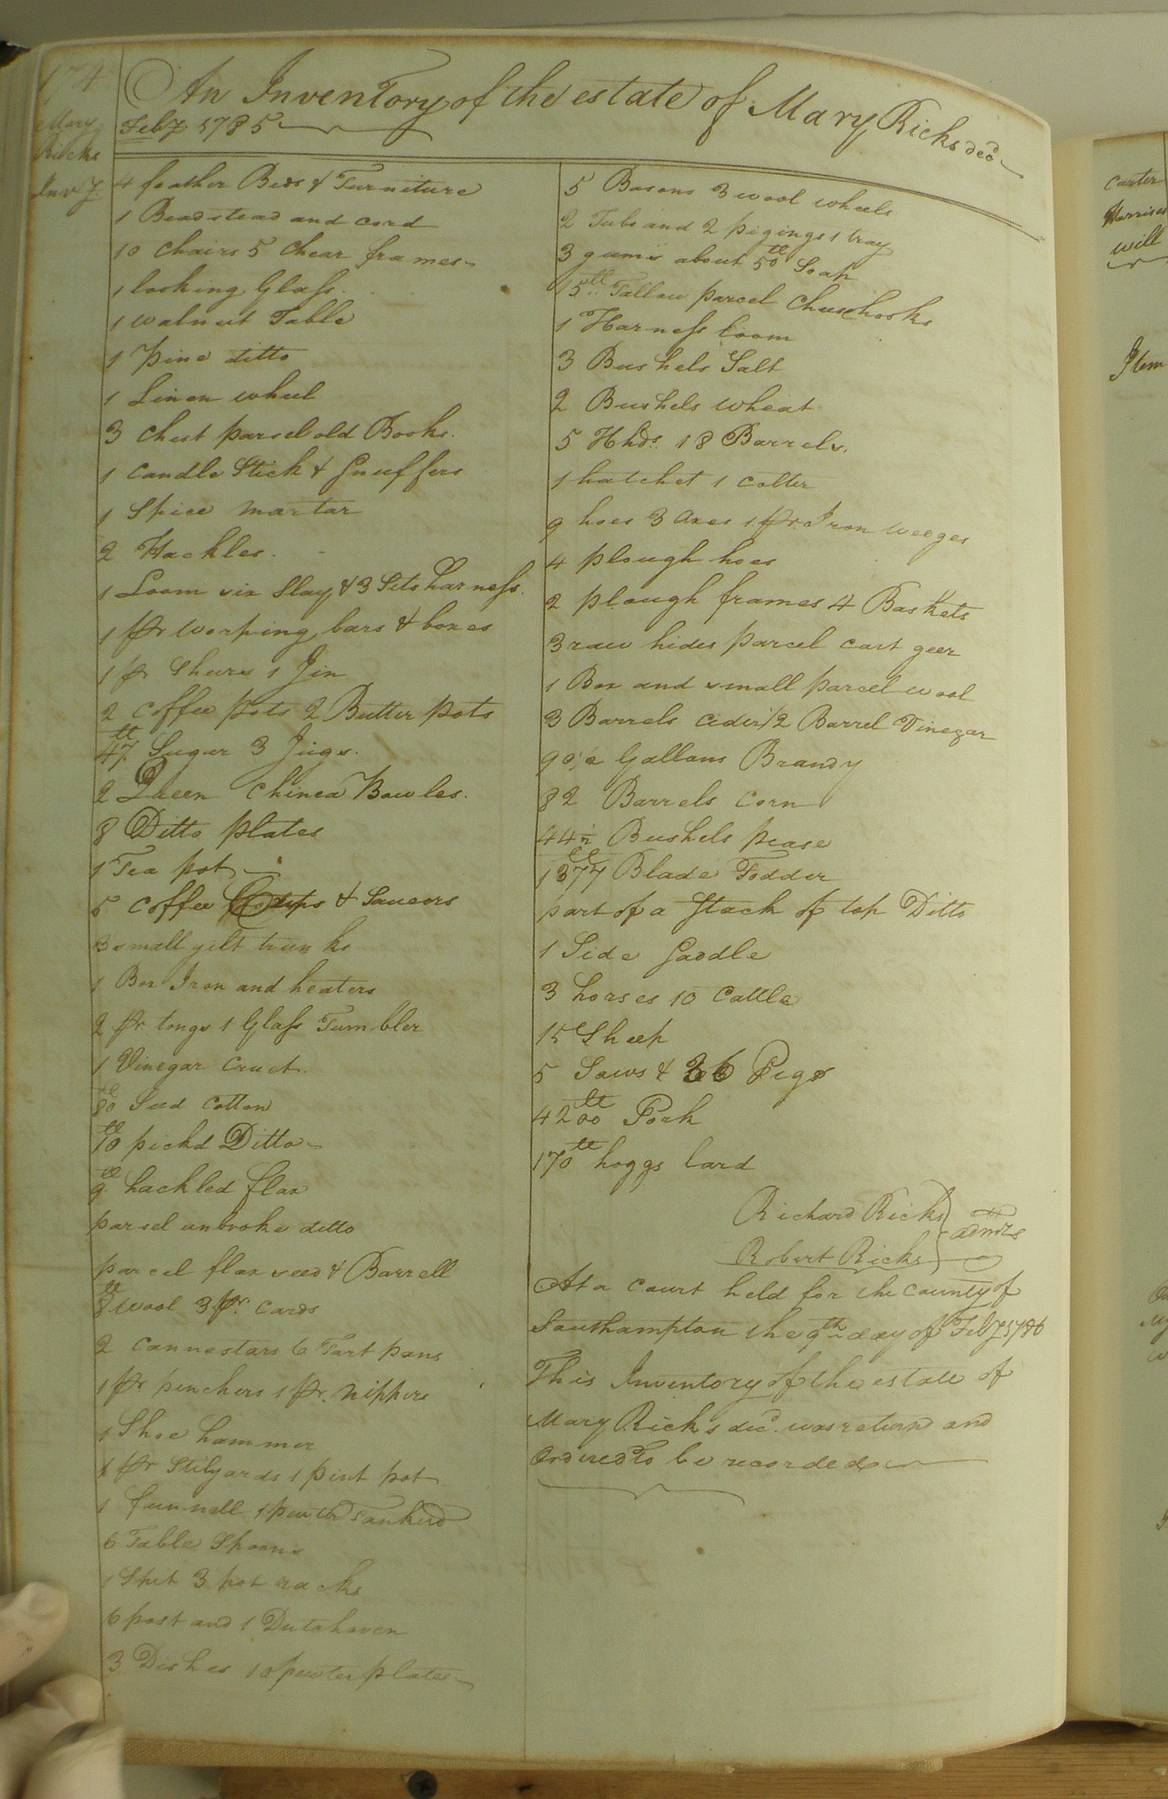 174
Mary
Ricks
Invy
An Inventory of the estate of Mary Ricks decd
Feby 1785
4 feather Beds & Furniture
1 Beadstead and cord
10 Chairs 5 Chear frames
1 looking Glass
1 walnut Table
1 Pine ditto
1 Linen wheel
3 Chest parcel old Books.
1 Candle Stick & Snuffers
1 Spice martar
2 Hackles.
1 Loom six Slay & 3 Sets harness.
1 pr worping bars & boxes
1 pr Shears 1 Jin
2 coffee pots 2 Butter pots
47 tt Sugar 3 Jugs.
2 Queen Chinea Bowles.
8 Ditto plates
1 Tea pot
5 Coffee Cups & Saucers
3 small gilt trunks
1 Box Iron and heaters
2 pr tongs 1 Glass Tumbler
1 Vinegar Cruet.
80 tt Seed Cotton
10 tt pickd Ditto
9 tt hackled flax
parsel unbroke ditto
parcel flax seed & Barrell
8 tt wool 3 pr. Cards
2 Cannestars 6 Tart pans
1 pr pinchers 1 pr. nippers
1 Shoe hammer
1 pr Stilyards 1 pint pot
1 funnell 1 pewter Tankerd
6 Table Spoons
1 Spit 3 pot racks
6 post and 1 Dutchoven
3 Dishes 10 pewter plates
5 Basons 3 wool wheels
2 Tubs and 2 pigings 1 tray
3 gums about 50 tt Soap
15 tt Tallow parcel Cheschooks
1 Harness Loom
3 Bushels Salt
2 Bushels wheat
5 Hhds. 18 Barrels.
1 hatchet 1 Colter
9 hoes 3 axes 1 pr. Iron weeges
4 plough hoes
2 plough frames 4 Baskets
3 raw hides parcel cart geer
1 Box and small parcel wool
3 Barrels Cider 1/2 Barrel Vinegar
90 1/2 Gallons Brandy
82 Barrels Corn
44 1/2 Bushels pease
1377 tt Blade Fodder
part of a Stack of top Ditto
1 Side Saddle
3 horses 10 Cattle
15 Sheep
5 Sows & 36 Pigs
4200 tt Pork
170 tt hoggs lard
Richard Ricks
Robert Ricks
admrs
At a Court held for the County of
Southampton the 9th day of Feby 1786
This Inventory of the estate of
Mary Rick's decd. was return and
Ordered to be recorded
Carter
Harrison
will
Item